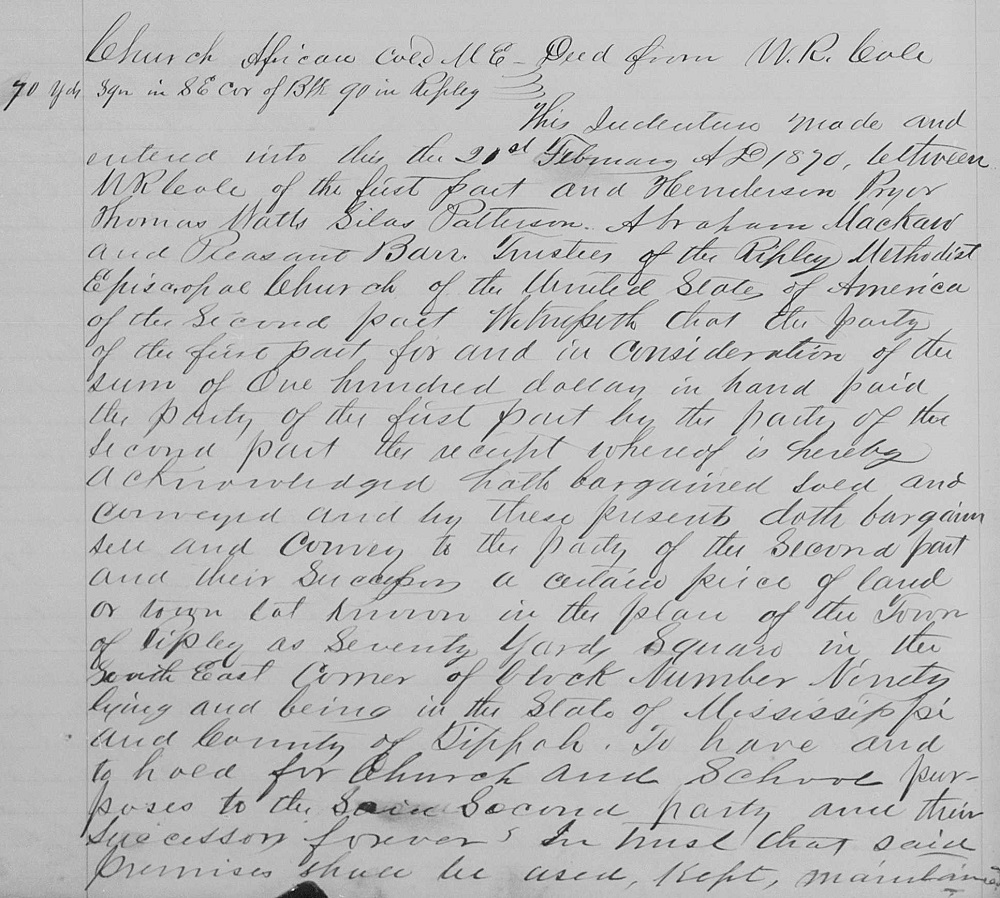 Church African Cold M E - Deed from W. R. Cole
70 Yds Sqr in S E Cor of Blk 90 in Ripley
This Indenture made and
entered into this the 21st February A D 1870, between
W R Cole of the first part and Henderson Pryor
Thomas Watts Silas Patterson. Abraham Mackaw
and Pleasant Barr. Trustees of the Ripley Methodist
Episcopal Church of the United States of America
of the Second part Witnesseth that the party
of the first part for and in consideration of the
sum of One hundred dollars in hand paid
the party of the first part by the party of the
Second part the receipt whereof is hereby
acknowledged hath bargained sold and
conveyed and by these presents doth bargain
sell and convey to the party of the Second part
and their Successors a certain piece of land
or town lot known in the plan of the Town
of Ripley as Seventy Yards Square in the
South East Corner of block Number Ninety
lying and being in the State of Mississippi
and County of Tippah. To have and
to hold for Church and School pur-
poses to the Said Second party and their
Successors forever In trust that said
premises shall be used, Kept, maintained